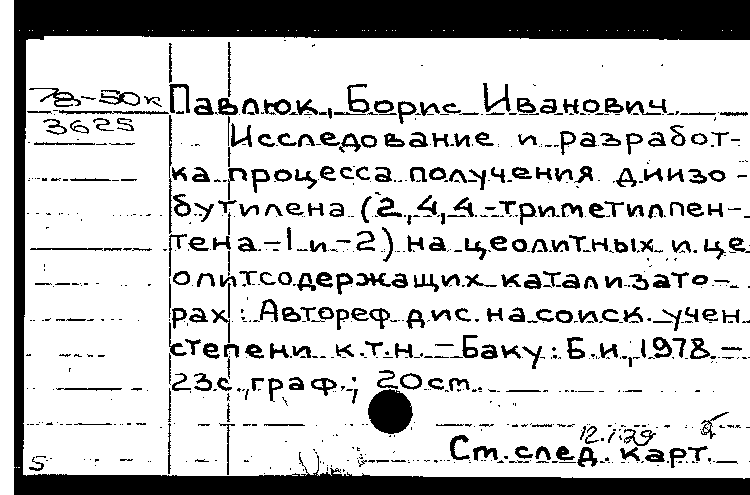 78-50к Павлюк, Борис Иванович.
3625 Исследование и разработ-
ка процесса получения диизо-
бутилена (2,4,4-триметилпен-
тена-1 и -2) на цеолитных и це
олитсодержащих катализато-
рах: Автореф. дис. на соиск. учен.
степени к.т.н. - Баку: Б.и., 1978. -
23с., граф.; 20 ст.
Ст. след. карт.
5